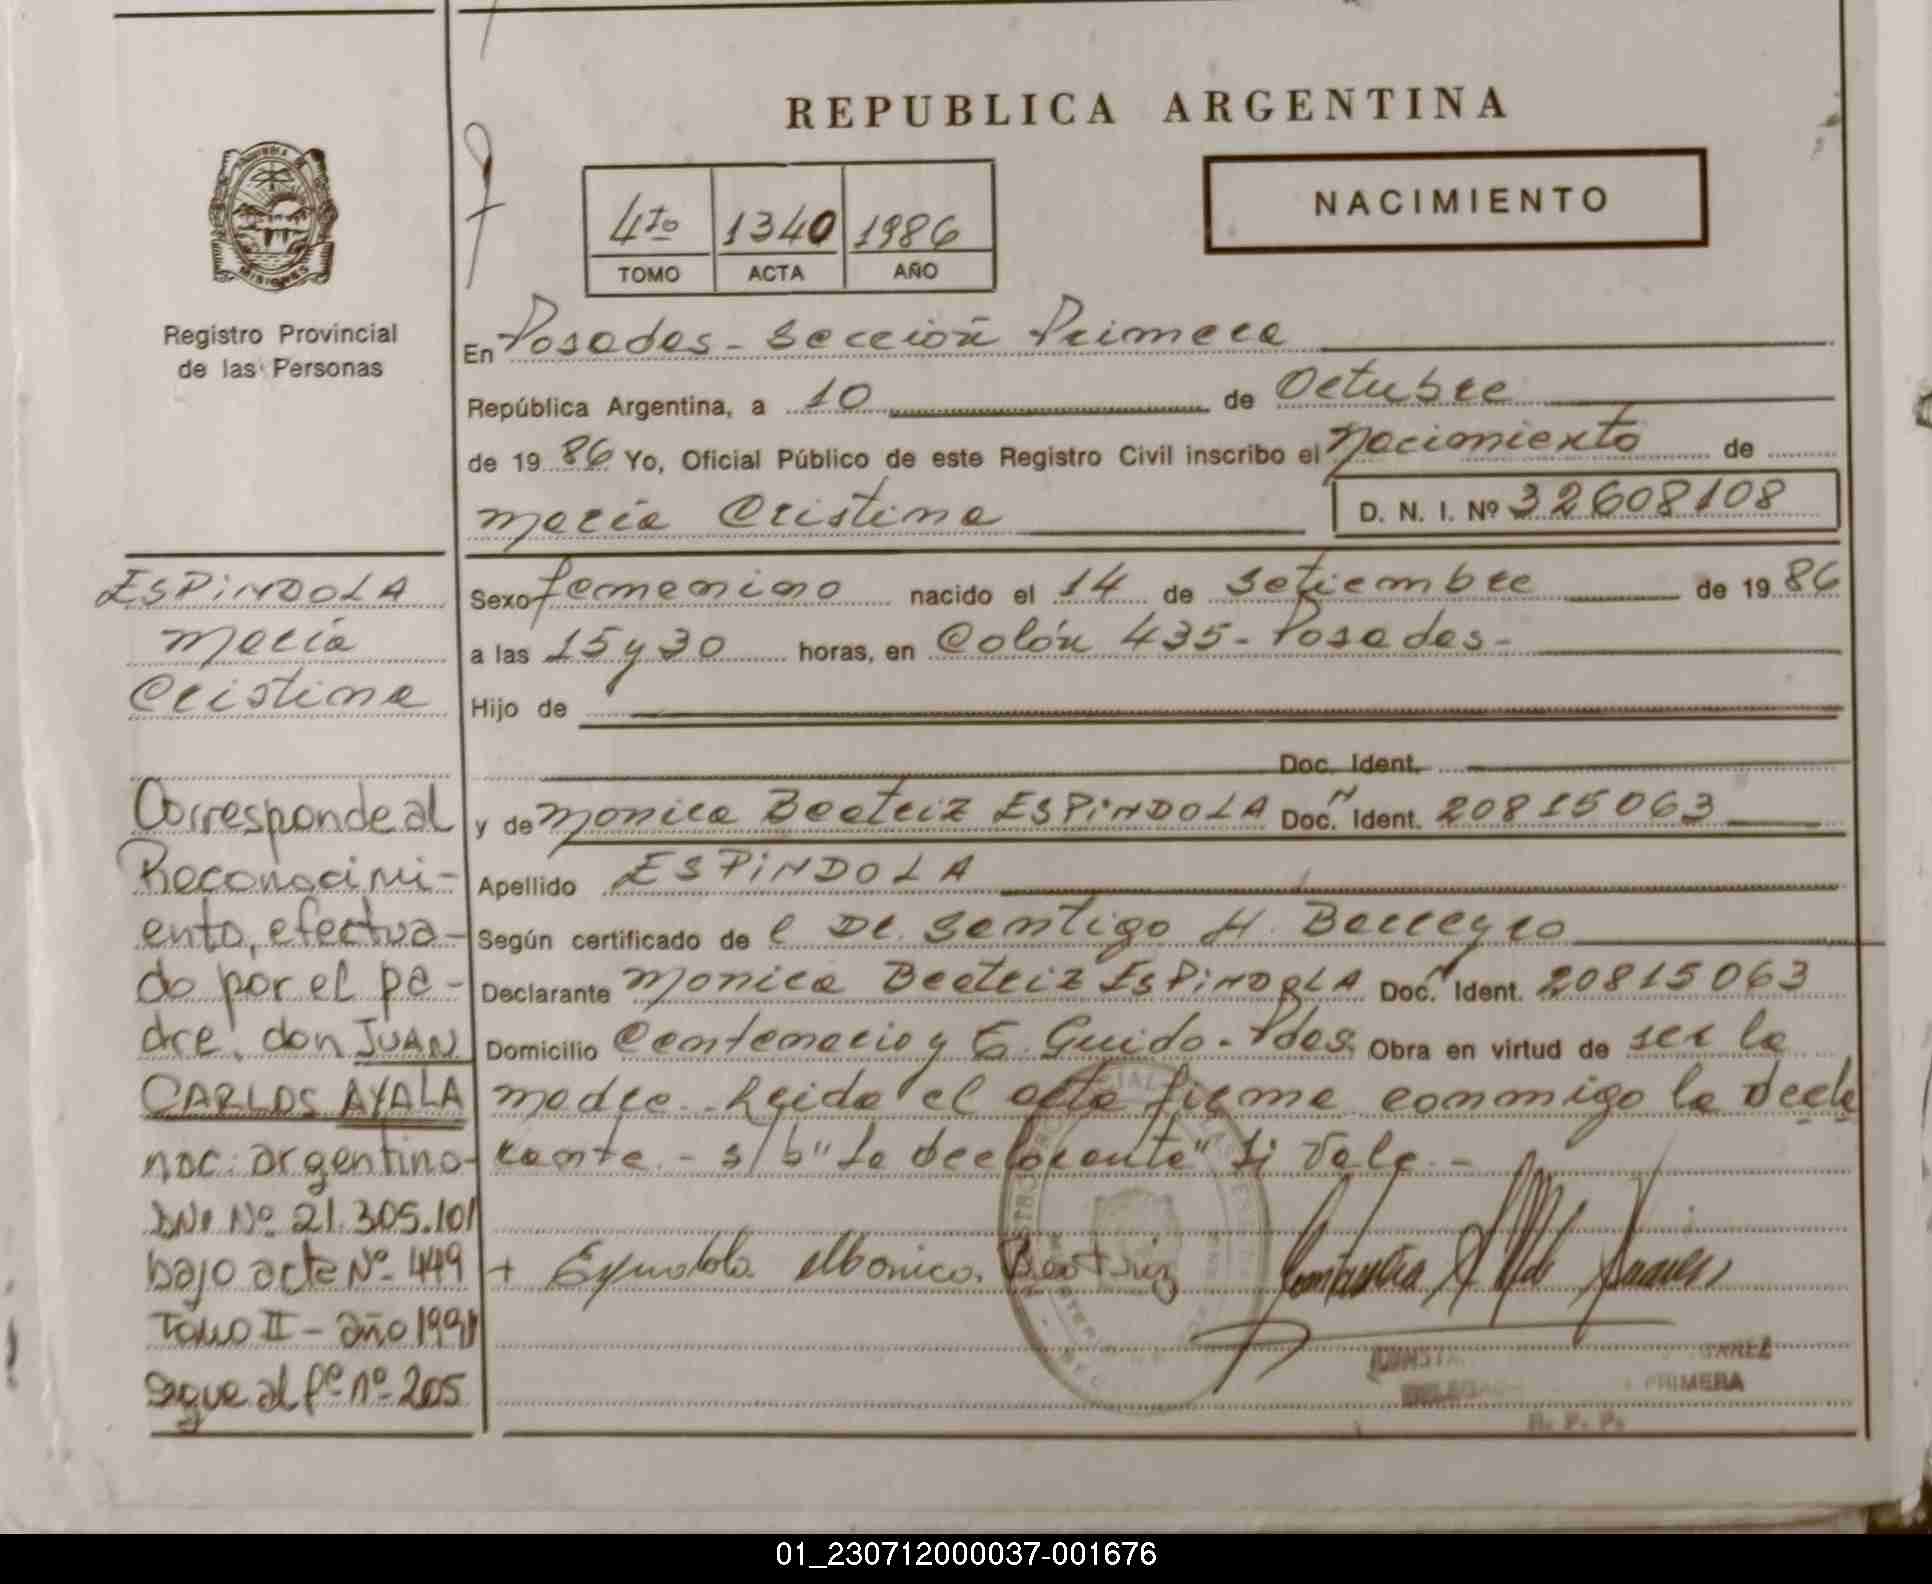 REPUBLICA ARGENTINA
NACIMIENTO
4to 1340 1986
TOMO ACTA AÑO
MISIONES
Registro Provincial
de las Personas
En Posadas - Sección Primera
República Argentina, a 10 de Octubre
de 1986 Yo, Oficial Público de este Registro Civil inscribo el Nacimiento de
María Cristina D. N. I. Nº 32608108
ESPINDOLA
María
Cristina
Sexo femenino nacido el 14 de Setiembre de 1986
a las 15 y 30 horas, en Colón 435 - Posadas -
Hijo de
Doc. Ident.
y de Monica Beatriz ESPINDOLA Doc. N Ident. 20815063
Apellido ESPINDOLA
Según certificado de l Dr. Santigo H. Barreyro
Declarante Monica Beatriz ESPINDOLA Doc. Ident. 20815063
Domicilio Centenario y E. Guido - Pdas. Obra en virtud de ser la
madre. - Leida el acta firma conmigo la decla
rante. - s/b "la declarante" Si Vale. -
Corresponde al
Reconocimi-
ento, efectua-
do por el pa-
dre, don JUAN
CARLOS AYALA
nac. argentino-
DNI Nº 21.305.101
bajo acta Nº 449
Tomo II - año 1991
Sigue al fº nº 205
+ Espindola Monica Beatriz
PRIMERA
R. P. P.
01_230712000037-001676